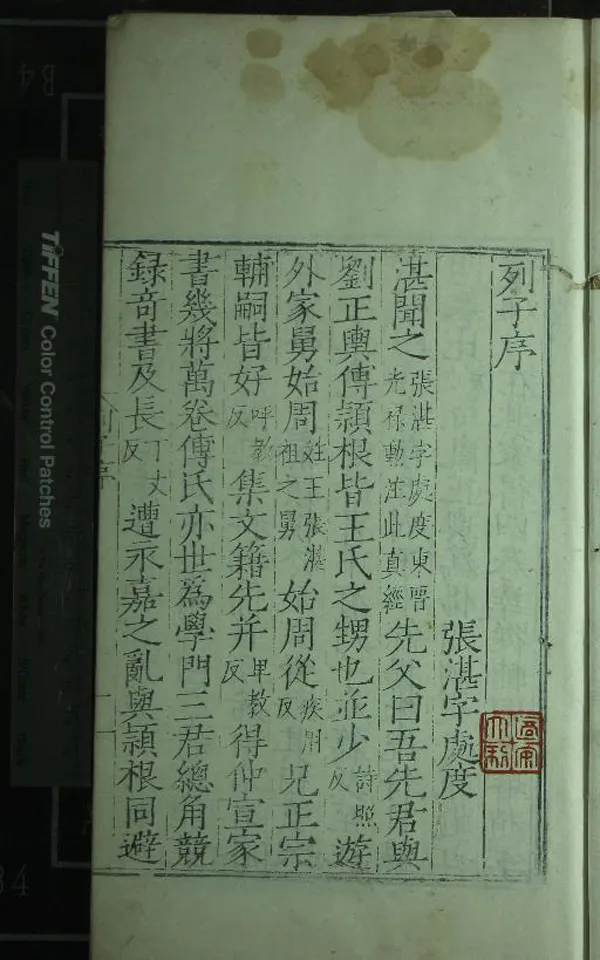 列子序
張湛字處度
湛聞之張湛字處度東晉光祿勳注此真經先父曰吾先君與
劉正輿傅頴根皆王氏之甥也並少詩照反遊
外家舅始周姓王張湛祖之舅始周從疾用反兄正宗
輔嗣皆好呼教反集文籍先并卑教反得仲宣家
書幾將萬卷傅氏亦世爲學門三君總角競
録奇書及長丁丈反遭永嘉之亂與頴根同避
TIFFEN Color Control Patches
B4